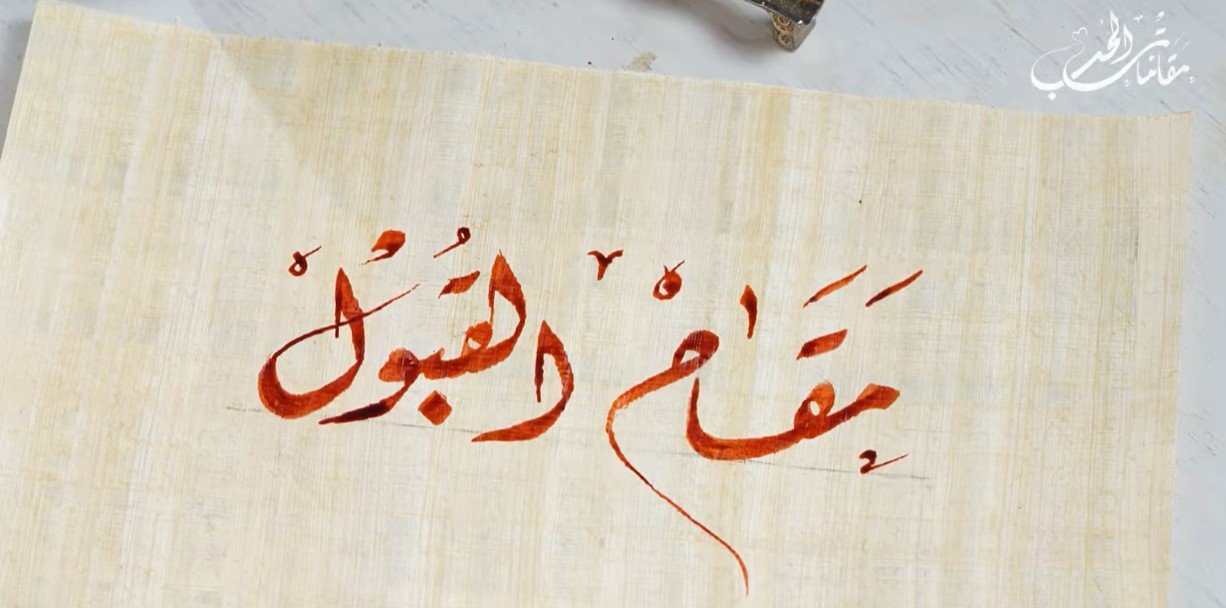 مقامات الحب
مَقَامْ القُبُولْ